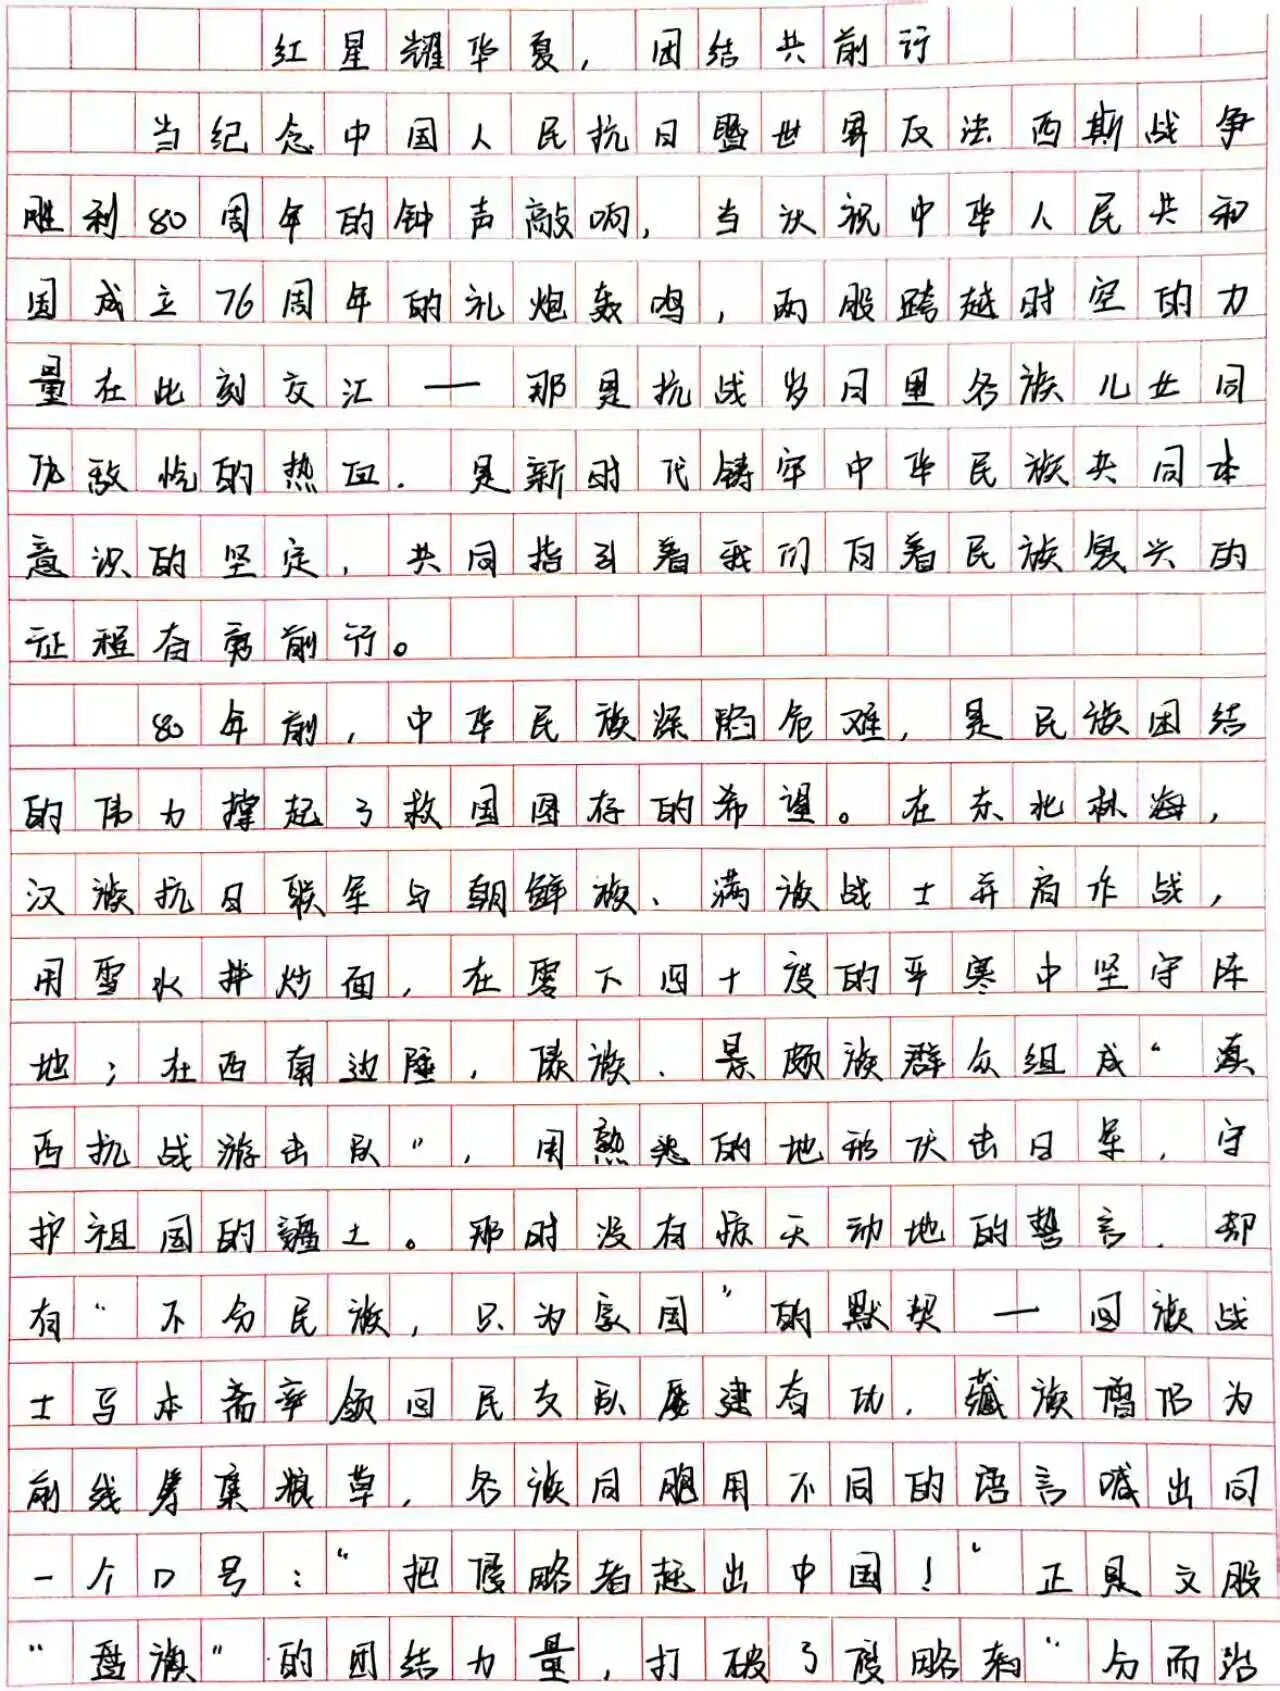 红星耀华夏，团结共前行
当纪念中国人民抗日暨世界反法西斯战争
胜利80周年的钟声敲响，当庆祝中华人民共和
国成立76周年的礼炮轰鸣，两股跨越时空的力
量在此刻交汇——那是抗战岁月里各族儿女同
仇敌忾的热血．是新时代铸牢中华民族共同体
意识的坚定，共同指引着我们向着民族复兴的
征程奋勇前行。
80年前，中华民族深陷危难，是民族团结
的伟力撑起了救国图存的希望。在东北林海，
汉族抗日联军与朝鲜族、满族战士并肩作战，
用雪水拌炒面，在零下四十度的严寒中坚守阵
地；在西南边陲，傣族、景颇族群众组成“滇
西抗战游击队”，用熟悉的地形伏击日军，守
护祖国的疆土。那时没有惊天动地的誓言，却
有“不分民族，只为家国”的默契—回族战
士马本斋率领回民支队屡建奇功，藏族僧侣为
前线筹集粮草，各族同胞用不同的语言喊出同
一个口号：“把侵略者赶出中国！”正是这股
“ 族”的团结力量，打破了侵略者“分而治